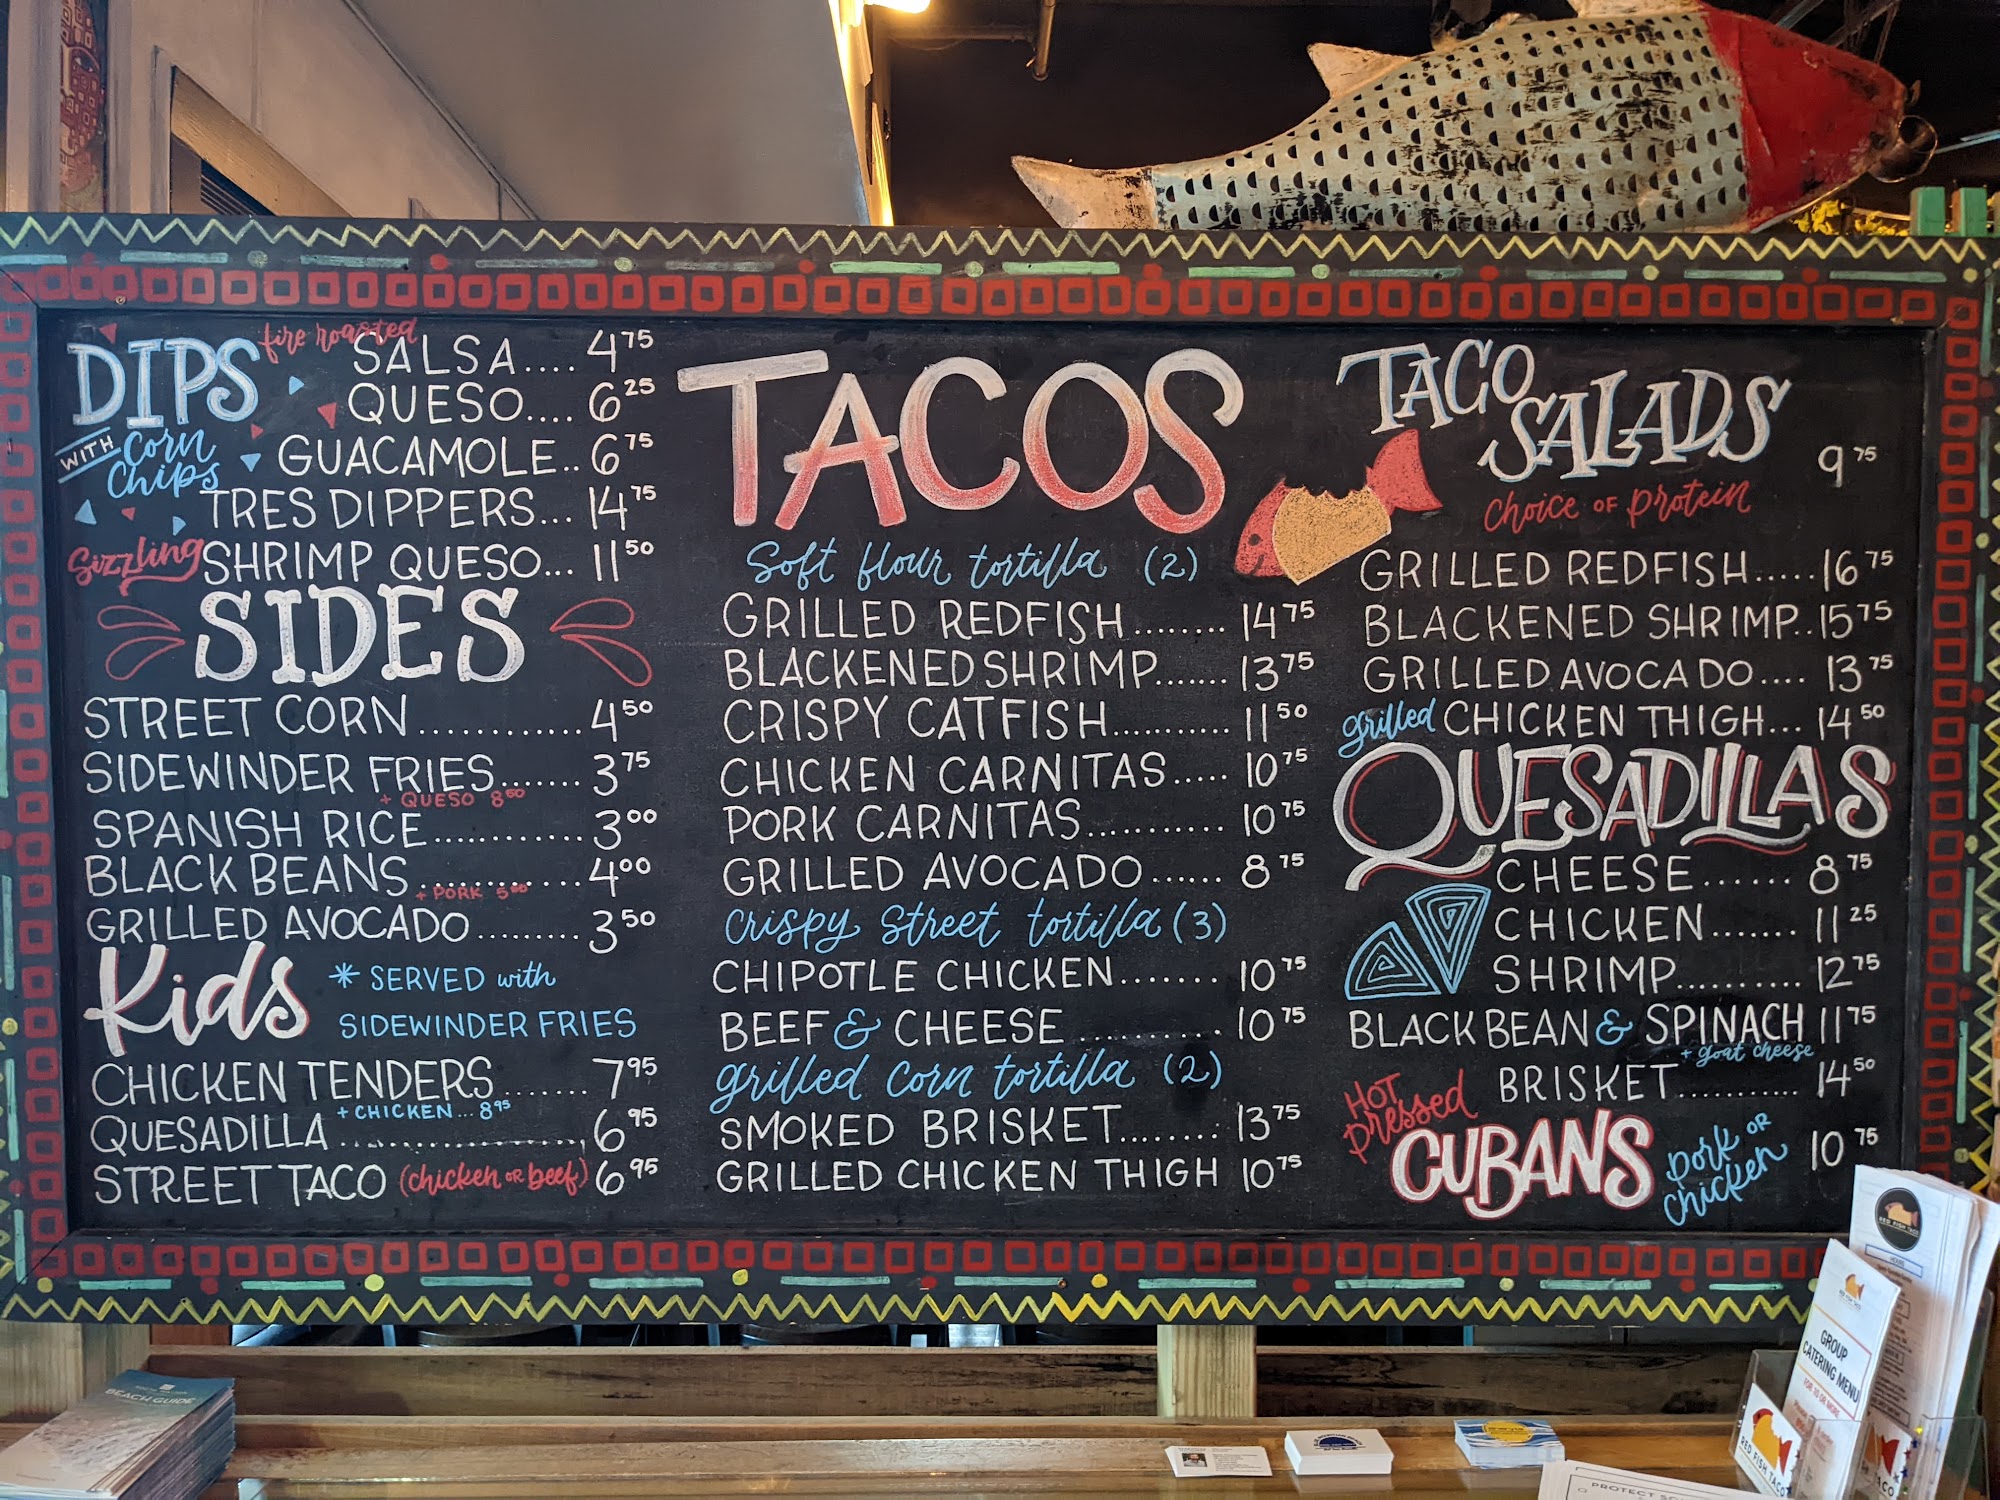 DIPS
WITH Corn Chips
fire roasted SALSA.... 4 75
QUESO.... 6 25
GUACAMOLE.. 6 75
TRES DIPPERS... 14 75
Sizzling SHRIMP QUESO... 11 50
SIDES
STREET CORN ............ 4 50
SIDEWINDER FRIES....... 3 75
+ QUESO 8 50
SPANISH RICE............ 3 00
BLACK BEANS ............ 4 00
+ PORK 5 00
GRILLED AVOCADO......... 3 50
Kids
* SERVED with
SIDEWINDER FRIES
CHICKEN TENDERS....... 7 95
+ CHICKEN... 8 95
QUESADILLA ................. 6 95
STREET TACO (chicken or beef) 6 95
TACOS
Soft flour tortilla (2)
GRILLED REDFISH........ 14 75
BLACKENED SHRIMP....... 13 75
CRISPY CATFISH.......... 11 50
CHICKEN CARNITAS..... 10 75
PORK CARNITAS............ 10 75
GRILLED AVOCADO...... 8 75
Crispy Street tortilla (3)
CHIPOTLE CHICKEN....... 10 75
BEEF & CHEESE .......... 10 75
grilled corn tortilla (2)
SMOKED BRISKET........ 13 75
GRILLED CHICKEN THIGH 10 75
TACO SALADS
9 75
Choice OF protein
GRILLED REDFISH..... 16 75
BLACKENED SHRIMP.. 15 75
GRILLED AVOCADO.... 13 75
grilled CHICKEN THIGH... 14 50
QUESADILLAS
CHEESE...... 8 75
CHICKEN....... 11 25
SHRIMP.......... 12 75
BLACK BEAN & SPINACH 11 75
+ goat cheese
BRISKET........... 14 50
HOT pressed
CUBANS
pork OR chicken
10 75
BEACH GUIDE
RED FISH TACO
GROUP
CATERING MENU
FOR 10 OR MORE
RED FISH TACO